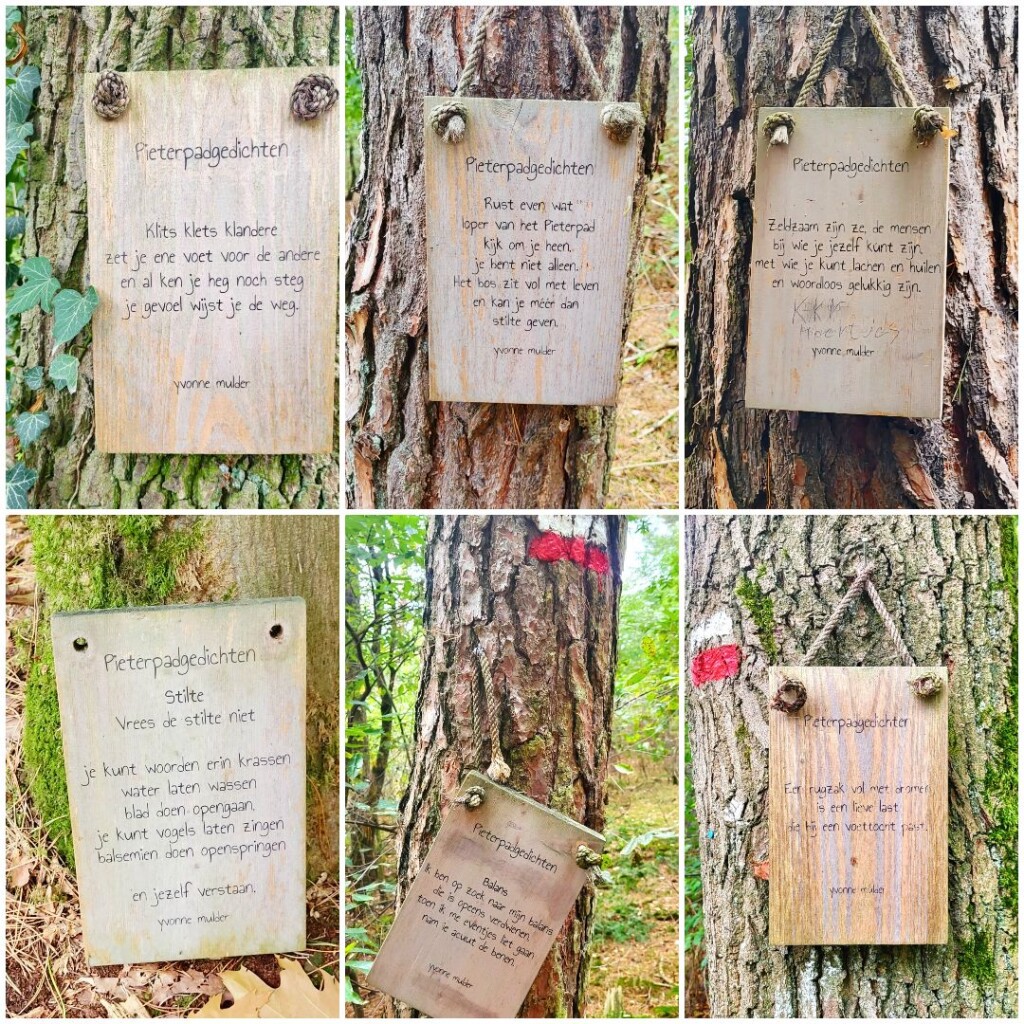 Pieterpadgedichten
Klits klets klandere
zet je ene voet voor de andere
en al ken je heg noch steg
je gevoel wijst je de weg.
yvonne mulder
Pieterpadgedichten
Rust even wat
loper van het Pieterpad
kijk om je heen,
je bent niet alleen.
Het bos zit vol met leven
en kan je méér dan
stilte geven.
yvonne mulder
Pieterpadgedichten
Zeldzaam zijn ze, de mensen
bij wie je jezelf kunt zijn,
met wie je kunt lachen en huilen
en woordloos gelukkig zijn.
yvonne mulder
Pieterpadgedichten
Stilte
Vrees de stilte niet
je kunt woorden erin krassen
water laten wassen
blad doen opengaan,
je kunt vogels laten zingen
balsemien doen openspringen
en jezelf verstaan.
yvonne mulder
Pieterpadgedichten
Balans
Ik ben op zoek naar mijn balans
die is opeens verdwenen
toen ik me eventjes liet gaan
nam ie acuut de benen.
yvonne mulder
Pieterpadgedichten
Een rugzak vol met dromen
is een lieve last
die bij een voettocht past.
yvonne mulder